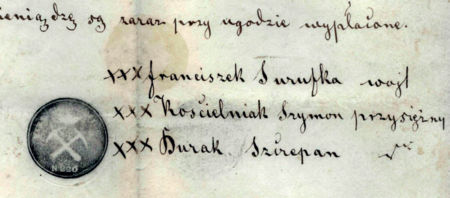 ieniądzę są zaraz przy ugodzie wypłacone.
xxx Franciszek Surufka wojt
xxx Kościelniak Szymon przysiężny
xxx Burak Szczepan